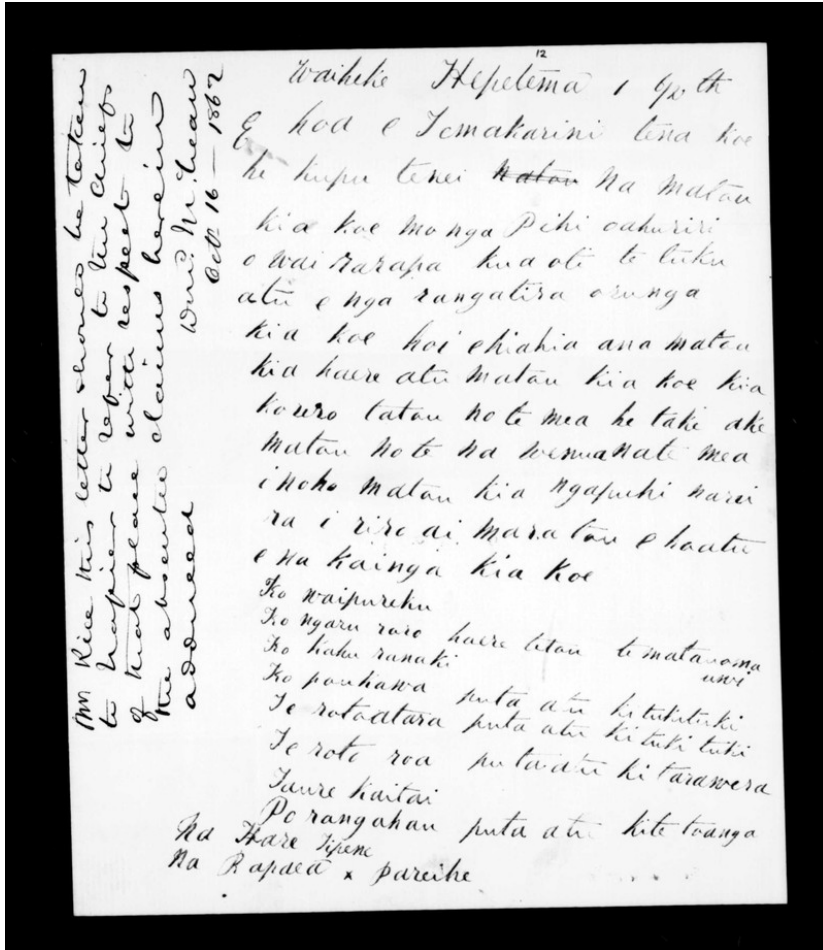 12
Waiheke Hepetema 1 62 th
E hoa e Temakarini tena koe
he kupu tenei natau Na matau
kia koe mo nga Pihi oahuriri
o wairarapa kua oti te tuku
atu e nga rangatira orunga
kia koe hoi ehiahia ana matau
kia haere atu matau kia koe kia
korero tatau no te mea he take ake
matau no te na wenua Nate mea
i noho matau kia ngapuhi narei
ra i riro ai mara tau e hoatu
e na kainga kia koe
Ko waipureku
Ko ngaru roro haere titau te matauoma
uwi
Ko kahu ranaki
Ko poukawa puta atu ki tukituki
Te rotoatara puta atu ki tuki tuki
Te roto roa puta atu ki tarawera
Taure kaitai
Po rangahau puta atu kite toanga
Na Ihare Tipene
Na Rapaea x pareihe
Mr Rice this letter should be taken
to Napier to refer to the chiefs
of that place with respect to
the absentee claims herein
adduced Wm. McLean
Oct 16 — 1862